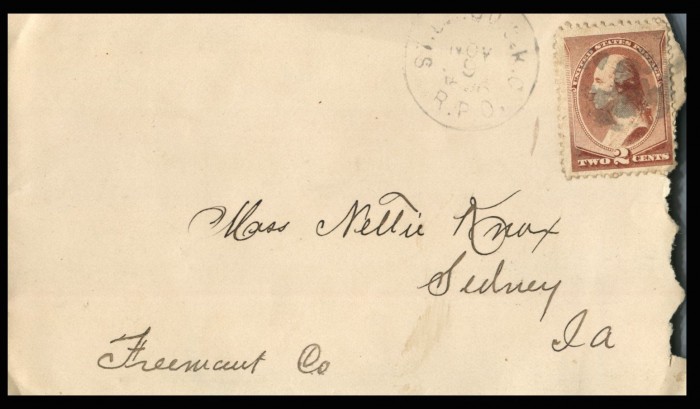 NOV
R.P.O.
UNITED STATES POSTAGE
TWO 2 CENTS
Miss Nettie Knox
Sidney
Ia
Freemaut Co